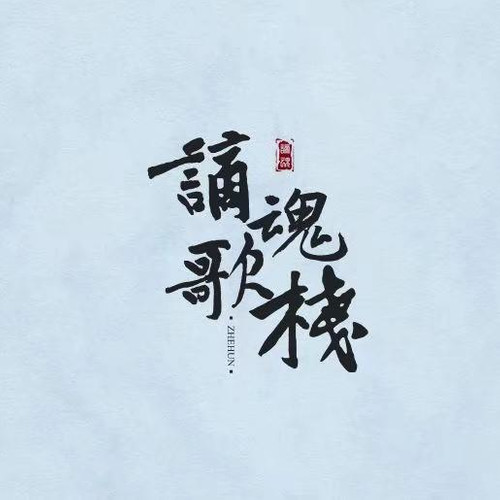 謫魂
歌栈
ZHEHUN